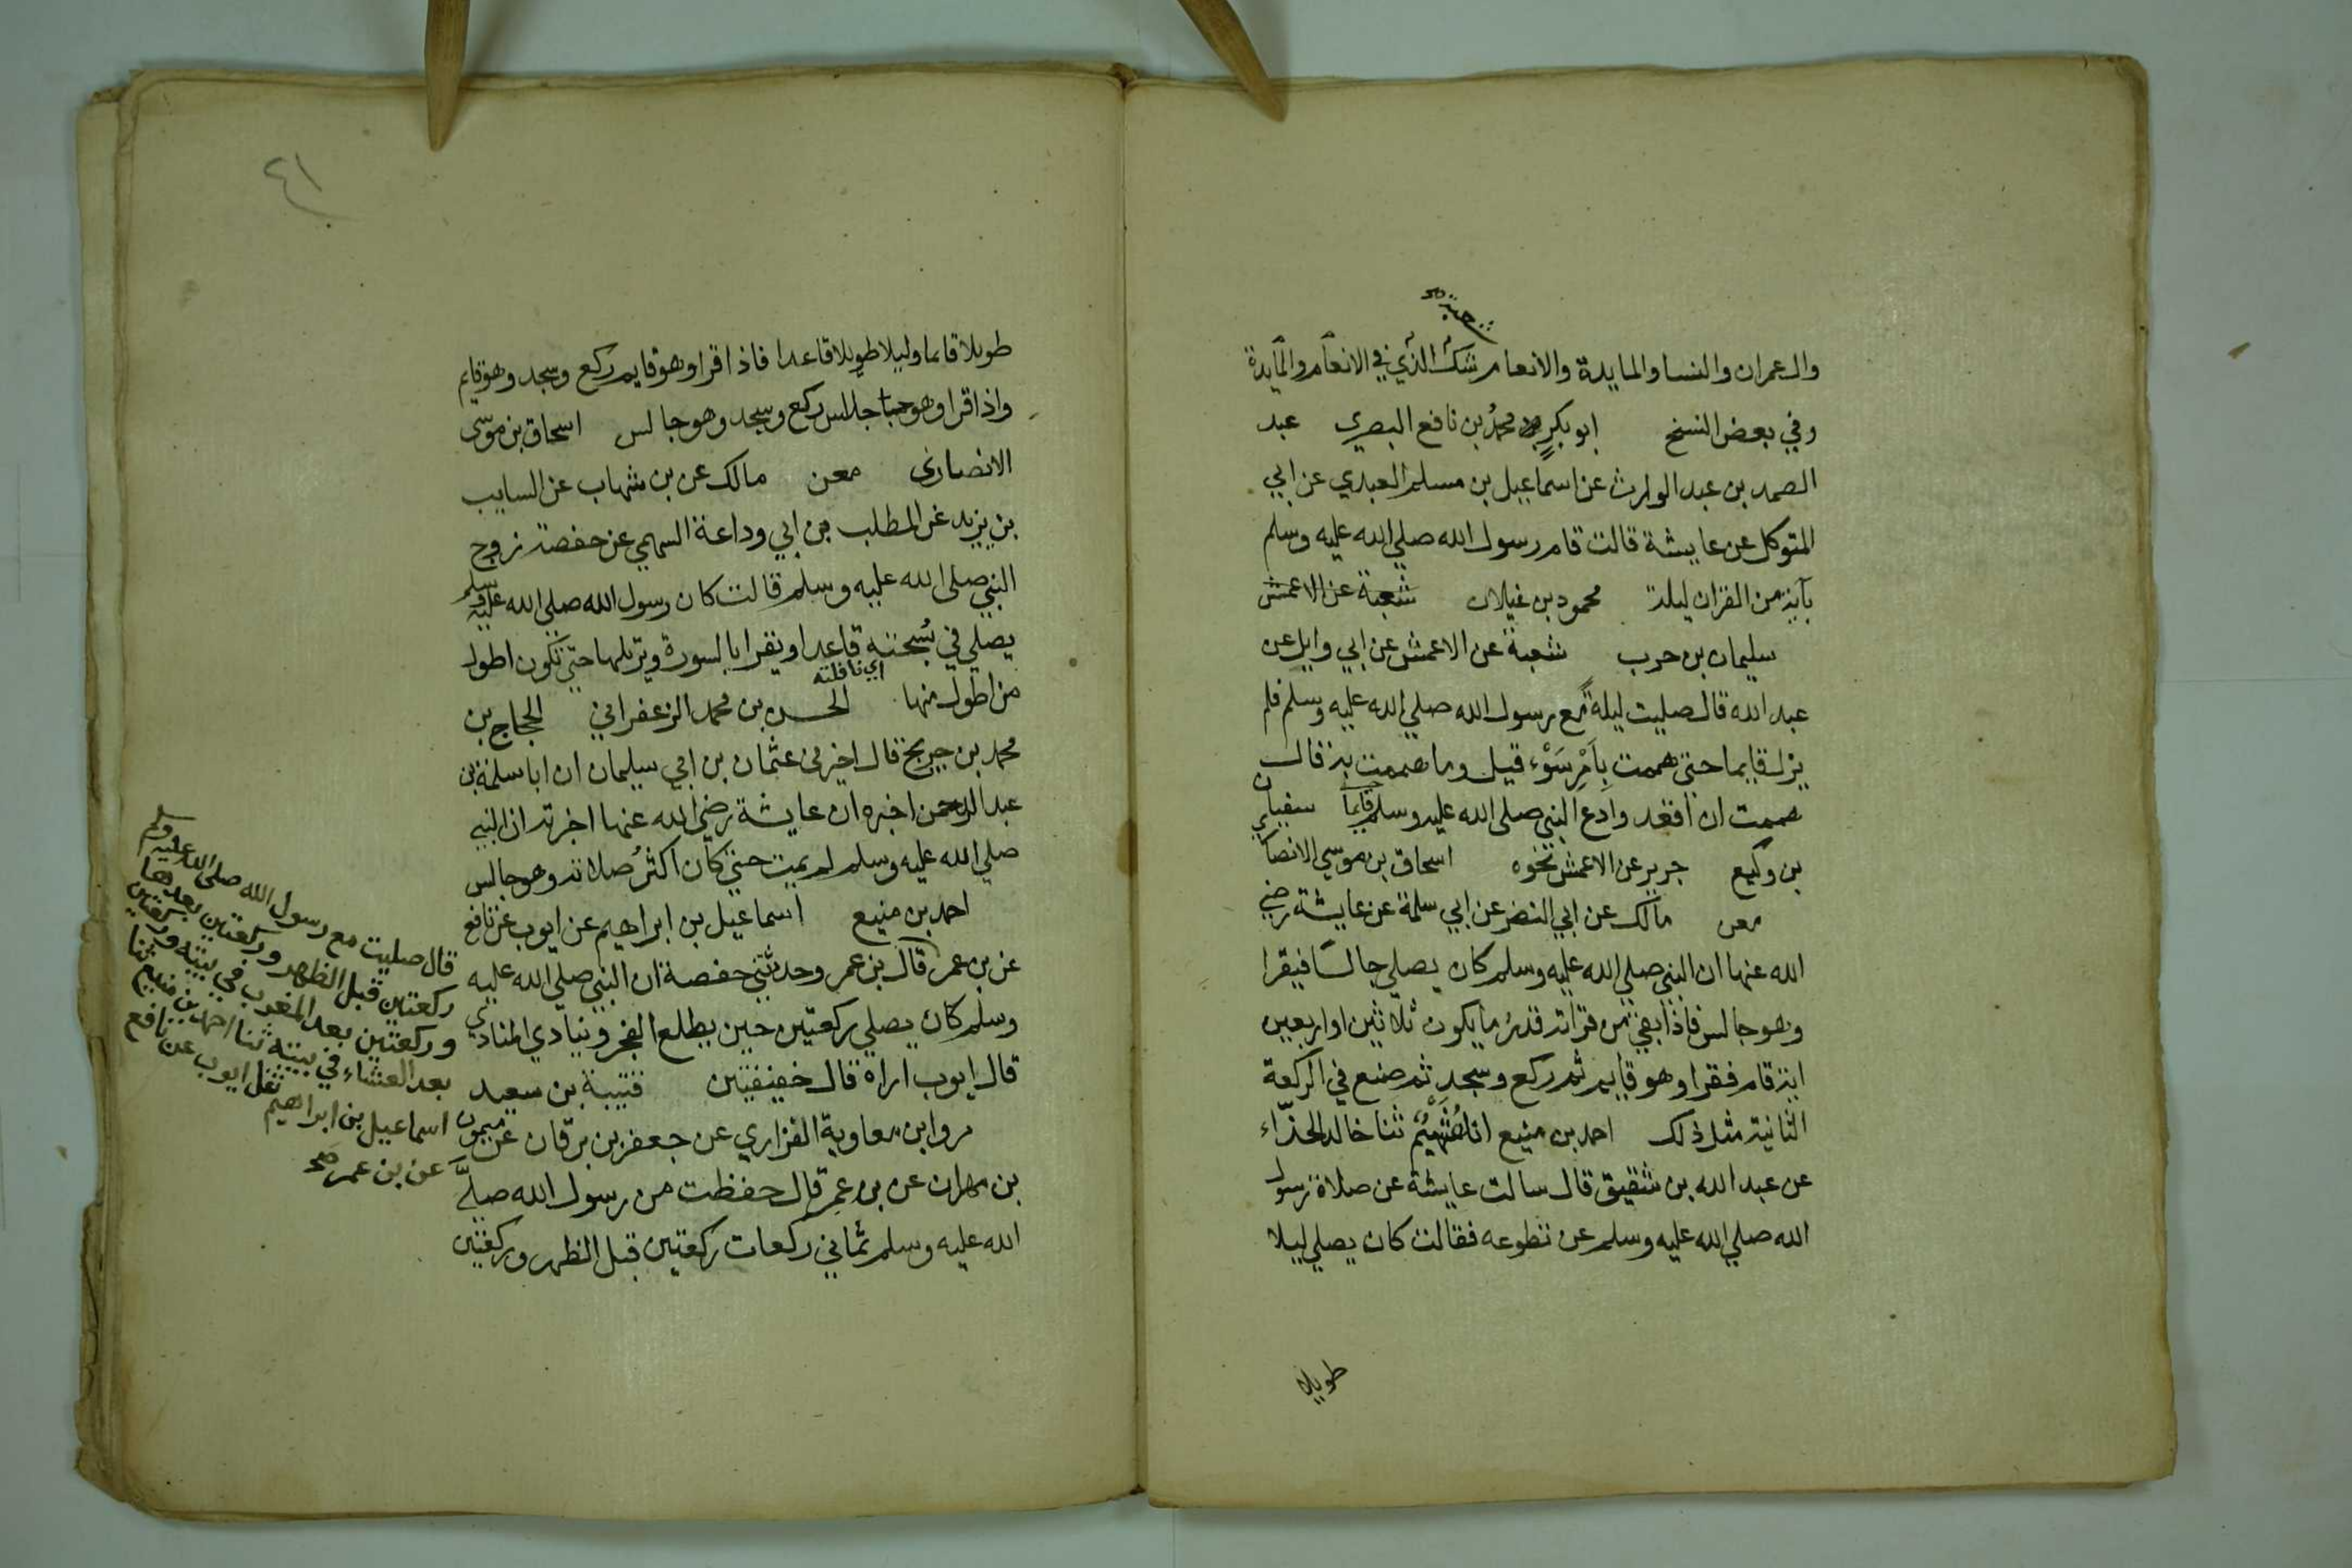 شعبة صح
وال عمران والنسا والمايدة والانعام شك الذي في الانعام والمايدة
وفي بعض النسخ ابو بكر محمد بن نافع البصري عبد
الصمد بن عبد الوارث عن اسماعيل بن مسلم العبدي عن ابي
المتوكل عن عايشة قالت قام رسول الله صلي الله عليه وسلم
بآية من القران ليلة محمود بن غيلان شعبة عن الاعمش
سليمان بن حرب شعبة عن الاعمش عن ابي وايل عن
عبد الله قال صليت ليلةً مع رسول الله صلي الله عليه وسلم فلم
يزل قايما حتى هممت بِاَمْرِ سَوْء قيل وما هممت به قال
هممت ان اقعد وادع النبي صلى الله عليه وسلم قايماً سفيان
بن وكيع جرير عن الاعمش نحوه اسحاق بن موسي الانصاري
معن مالك عن ابي النضر عن ابي سلمة عن عايشة رضي
الله عنها ان النبي صلي الله عليه وسلم كان يصلي جالسًا فيقرا
وهو جالس فاذا بقي من قراته قدر ما يكون ثلاثين او اربعين
اية قام فقرا وهو قايم ثم ركع وسجد ثم صنع في الركعة
الثانية مثل ذلك احمد بن منيع انا هُشَيْم ثنا خالد الحذّاء
عن عبد الله بن شقيق قال سالت عايشة عن صلاة رسول
الله صلي الله عليه وسلم عن تطوعه فقالت كان يصلي ليلا
طويلا
٤١
طويلا قايما وليلا طويلا قاعدا فاذا قرا وهو قايم ركع وسجد وهو قايم
واذا قرا وهو جالس ركع وسجد وهو جالس اسحاق بن موسى
الانصارى معن مالك عن بن شهاب عن السايب
بن يزيد عن المطلب بن ابي وداعة السهمي عن حفصة زوج
النبي صلى الله عليه وسلم قالت كان رسول الله صلى الله عليه وسلم
يصلي في سُبحته قاعدا ويقرا بالسورة ويرتلها حتى تكون اطول
اي نافلته
من اطول منها الحسن بن محمد الزعفراني الحجاج بن
محمد بن جريج قال اخبرني عثمان بن ابي سليمان ان ابا سلمة بن
عبد الرحمن اخبره ان عايشة رضي الله عنها اخبرته ان النبي
صلي الله عليه وسلم لم يمت حتى كان اكثرُ صلاته وهو جالس
احمد بن منيع اسماعيل بن ابراهيم عن ايوب عن نافع
عن بن عمر قال بن عمر وحدثتني حفصة ان النبي صلي الله عليه
وسلم كان يصلي ركعتين حين يطلع الفجر وينادي المنادي
قال ايوب اراه قال خفيفتين قتيبة بن سعيد
مروا بن معاوية الفزاري عن جعفر بن برقان عن ميمون
بن مهران عن بن عمر قال حفظت من رسول الله صلي
الله عليه وسلم ثماني ركعات ركعتين قبل الظهر وركعتين
قال صليت مع رسول الله صلى الله عليه وسلم
ركعتين قبل الظهر وركعتين بعدها
وركعتين بعد المغرب في بيته وركعتين
بعد العشاء في بيته ثنا احمد بن منيع ثنا
اسماعيل بن ابراهيم ثنا ايوب عن نافع
عن بن عمر صح